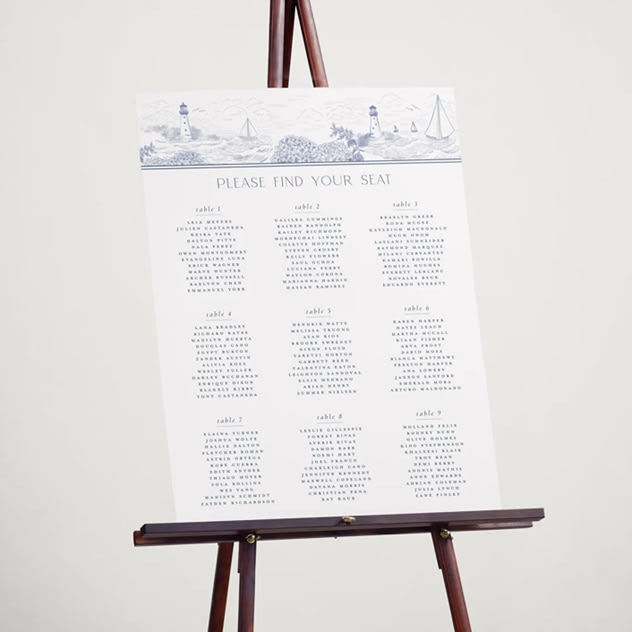 PLEASE FIND YOUR SEAT
table 1
LEIA MEYERS
JULIEN CASTANEDA
KEIRA TATE
DALTON PITTS
NALA PEREZ
OWEN MONTGOMERY
EVANGELINE LUNA
ERICK WAGNER
MAEVE HUNTER
ARCHER RUSSELL
RAELYNN CHEN
EMMANUEL YORK
table 2
DALILEA CUMMINGS
KAIDEN RANDOLPH
KAILEY RICHMOND
MORDECHAI LINDSEY
COLETTE HOFFMAN
STEVEN CROSBY
EMILY FLOWERS
SAUL OCHOA
LUCIANA PERRY
WAYLON CORONA
MARIANNA HARDIN
HASSAN RAMIREZ
table 3
BRAELYN GREER
KODA MCGEE
KAYLEIGH MACDONALD
HUGH ODOM
LAYLANI SCHNEIDER
RAYMOND MARQUEZ
MILANI CERVANTES
KAMARI BONILLA
ROMINA HUGHES
EVERETT LEBLANC
NOVALEE BECK
EDUARDO EVERETT
table 4
LANA BRADLEY
RICHARD HAYES
MADILYN HUERTA
DOUGLAS CANO
EGYPT BURTON
ZANDER AUSTIN
ALIVIA ROSS
WESLEY FULLER
OAKLEY BUCHANAN
ENRIQUE DIXON
BLAKELY KIRBY
TONY CASTANEDA
table 5
HENDRIK WATTS
MELISSA TRUONG
AYAN KIDD
BROOKE SWEENEY
NIXON FLOYD
YARETZI HORTON
GARRETT REED
VALENTINA EATON
LEIGHTON SANDOVAL
ELSIE MEDRANO
ARIAN HENRY
SUMMER NIELSEN
table 6
KAREN HARPER
HAYES LEACH
MARTHA MCCALL
KIAAN FISHER
ARYA FROST
DARIO MOSS
BIANCA MATTHEWS
PRESTON HARPER
ANA LOWERY
JAXTON SANFORD
EMERALD MORA
ARTURO MALDONADO
table 7
ELAINA TURNER
JOSHUA WOLFE
HALLIE DALTON
FLETCHER ROMAN
ASTRID ORTEGA
KOBE GUERRA
EDITH SNYDER
THIAGO MOYER
ZOLA ROLLINS
WES VANG
MADISYN SCHMIDT
ZAYDEN RICHARDSON
table 8
LESLIE GILLESPIE
FOREST RIVAS
AVERIE RIVAS
DAMON BARR
NOEMI HART
JOEL FRANCO
CHARLEIGH CANO
JENNIFER KENNEDY
MAXWELL COPELAND
DAYANA MORRIS
CHRISTIAN PENA
table 9
HOLLAND FELIX
RODNEY DUNN
OLIVE HOLMES
KING STEPHENSON
KHALEESI BLAIR
TROY BEAN
DEMI BERRY
ADONIS MATHIS
ANNE EDWARDS
ADRIAN COLEMAN
JULIA LYNCH
ZANE FINLEY